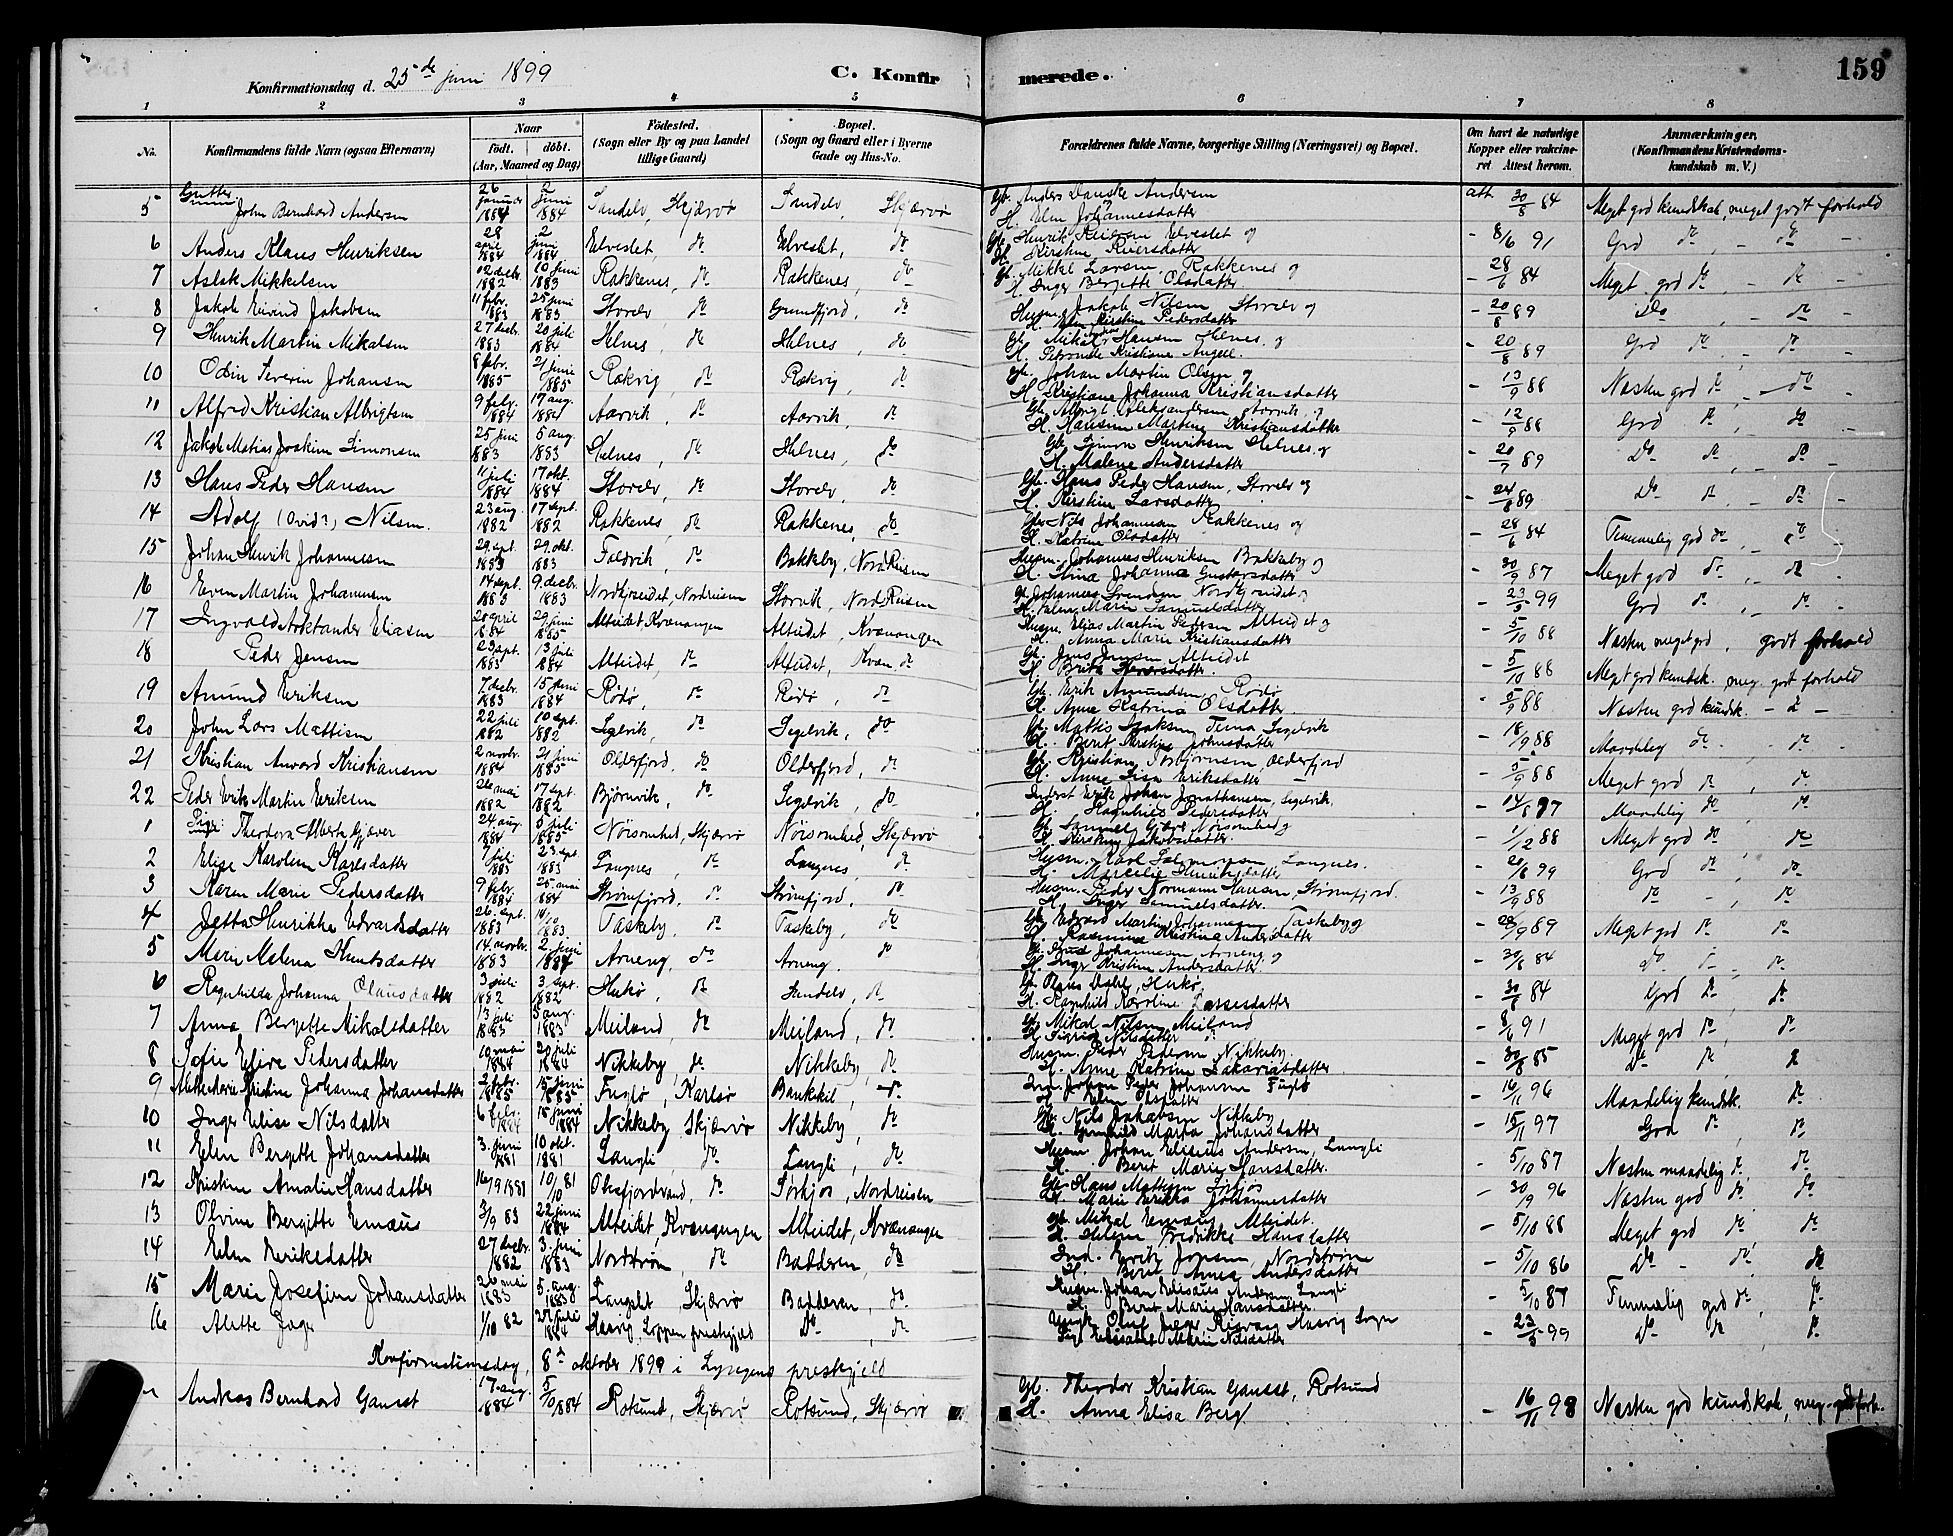 159
Konfirmationsdag d. 25de juni 1899
C. Konfir merede.
1 2 3 4 5 6 7 8
No. Konfirmandens fulde Navn (ogsaa Efternavn) Naar født. døbt. (Aar, Maaned og Dag) Fødested. (Sogn eller By og paa Landet tillige Gaard) Bopæl. (Sogn og Gaard eller i Byerne Gade og Hus-No. Forældrenes fulde Navne, borgerlige Stilling (Næringsvei) og Bopæl. Om havt de naturlige Kopper eller vakcineret Attest herom. Anmærkninger. (Konfirmandens Kristendomskundskab m. V.)
Gutter
5 John Bernhard Andersen 26 januar 1884 2 juni 1884 Sandelv, Skjærvø Sandelv, Skjærvø Gb. Anders Danske Andersen H. Elen Johannesdatter att. 30/8 84 Meget god kundskab, meget godt forhold
6 Anders Klaus Henriksen 28 april 1884 2 juni 1884 Elvestet, do Elvestet, do Gb. Henrik Elvestet og H. Kirstine - 8/6 91 God do, - do -
7 Aslak Mikkelsen 12 decbr. 1882 10 juni 1883 Rakkenes, do Rakkenes, do Gb. Mikkel Larsen Rakkenes og H. Inger Bergitte Olsdatter - 28/6 84 Meget god do, - do -
8 Jakob Eivind Jakobsen 11 febr. 1883 25 juni 1883 Storelv, do Grundfjord, do Husm. Jakob Nilsen Storelv og H. Elen Kirstine Pedersdatter - 20/8 89 Do, - do -
9 Henrik Martin Mikalsen 27 decbr. 1883 20 juli 1884 Helnes, do Helnes, do Gb. Mikal Hansen Helnes og H. Petronele Kristiane Angell. - 20/8 89 God do, - do -
10 Odin Severin Johansen 8 febr. 1885 21 juni 1885 Rakvig, do Rakvig, do Gb. Johan Martin Olsen og H. Kristiane Johanna Kristiansdatter - 13/9 88 Næsten god do, - do
11 Alfred Kristian Albrigtsen 9 febr. 1884 17 aug. 1884 Aarvik, do Aarvik, do Gb. Albrigt Aleksandersen Aarvik og H. Hansine Martine Kristiansdatter - 12/9 88 God do, do -
12 Jakob Matias Joakim Simonsen 25 juni 1883 5 aug. 1883 Helnes, do Helnes, do Gb. Simon Henriksen Helnes og H. Malene Andersdatter - 20/7 89 Do do, - do -
13 Hans Peder Hansen 11 juli 1884 17 okt. 1884 Storelv, do Storelv, do Gb. Hans Peder Hansen, Storelv og H. Kirstine Larsdatter - 24/8 89 Do do, - do -
14 Adolf (Ovid?) Nilsen. 23 aug. 1882 17 sept. 1882 Rakkenes, do Rakkenes, do Gb. Nils Johannesen Rakkenes og H. Katrine Olsdatter - 28/6 84 Temmelig god do, - do -
15 Johan Henrik Johannesen 29. sept. 1883 29. okt. 1883 Faldvik, do Bakkeby, Nord Reisen Husm. Johannes Henriksen Bakkeby og H. Stina Johanna Gustavsdatter - 30/9 87 Meget god do, do
16 Even Martin Johannesen 14 sept. 1883 9. decbr. 1883 Nordkjoseidet, Nordreisen Storvik, Nord Reisen Gb. Johannes Svendsen Nordkjoseidet og H. Marie Samuelsdatter - 23/5 99 God do, - do -
17 Ingvald Arktander Eliasen 20 april 1884 29 juni 1885 Alteidet Kvænangen Alteidet, Kvænangen Husm. Elias Martin Pedersen Alteidet og H. Anna Marie Kristiansdatter - 5/10 88 Næsten meget god, godt forhold
18 Peder Jensen 23 sept. 1883 13 juli 1884 Alteidet, do Alteidet, Kvæn. do Gb. Jens Jensen Alteidet H. Brita Iversdatter - 5/10 88 Meget god kundsk. meg. godt forhold
19 Amund Eriksen 7. decbr. 1883 15 juni 1884 Rødø, do Rødø, do Gb. Erik Amundsen, Rødø H. Anne Katrine Olsdatter - 5/9 88 Næsten god kundsk. - do -
20 John Lars Mattisen 22 juli 1882 10 sept. 1882 Segelvik, do Segelvik, do Gb. Mattis Isaksen Tema Segelvik H. Berit Kirstine Johnsdatter - 18/9 88 Maadelig do - do -
21 Kristian Anvard Kristiansen 2 novbr. 1884 21 juni 1885 Olderfjord, do Olderfjord, do Gb. Kristian Torbjørnsen, Olderfjord H. Anne Lisa Eriksdatter - 5/9 88 Meget god do, do
22 Peder Erik Martin Eriksen 26 mai 1882 17 sept. 1882 Bjørnvik, do Segelvik, do Inderst Erik Johan Jonathansen, Segelvik. H. Ragnhild Pedersdatter - 14/8 97 Maadelig do do
Piger:
1 Theodora Alberta Gjæver 24 aug. 1884 5 juli 1885 Nøisomhed, Skjærvø Nøisomhed, Skjærvø Gb. Samuel Gjæver Nøisomhed og H. Kirstine Jakobsdatter - 1/12 88 Meget god do, do
2 Elise Karoline Karlsdatter 7 juli 1883 23 sept. 1883 Langnes, do Langnes, do Husm. Karl Salomonsen, Langnes. H. Marcelie Henriksdatter - 20/6 99 God do, do
3 Karen Marie Pedersdatter 9 febr. 1884 25 mai 1884 Strømfjord, do Strømfjord, do Husm. Peder Normann Hansen, Strømfjord. H. Inger Samuelsdatter - 13/9 88 do -, do
4 Jetta Henrikke Edvardsdatter 26. sept. 1883 14/10 1883 Taskeby, do Taskeby, do Gb. Edvard Martin Johannesen Taskeby og H. Rasmine Kristina Andersdatter - 28/9 89 Meget god do do
5 Marie Malena Knutsdatter 14. novbr. 1883 2 juni 1884 Arneng, do Arneng, do Gb. Knud Johannesen Arneng og H. Inger Kristine Andersdatter. - 30/8 84 do do, do
6 Ragnhilda Johanna Clausdatter 3 juli 1882 3 sept. 1882 Hukø, do Sandelv, do Gb. Claus Dahl, Hukø, H. Ragnhild Karoline Larsesdatter - 30/8 84 God do do
7 Anna Bergette Mikalsdatter 13 juli 1883 5 aug. 1883 Meiland, do Meiland, do Gb. Mikal Nilsen Meiland H. Sigrid Nilsdatter do - 8/6 91 Meget god do, do
8 Sofie Elive Pedersdatter 10 mai 1884 20 juli 1884 Nikkeby, do Nikkeby, do Husm. Peder Pedersen Nikkeby. H. Anne Katrine Zakariasdatter - 30/8 85 Do do do
9 Marie Kristine Johanna Johansdatter 2 febr. 1885 15 juni 1885 Fuglø, Karlsø Bankekeil, do Ind. Johan Peder Johansen Fuglø H. Elen Olsdatter - 16/11 96 Maadelig kundsk. do
10 Inger Elise Nilsdatter 6 febr. 1884 15 juni 1884 Nikkeby, Skjærvø Nikkeby, do Gb. Nils Jakobsen Nikkeby H. Gunhild Marta Johansdatter - 15/11 97 God do, do
11 Elen Bergette Johansdatter 3. juni 1881 10 okt. 1881 Langli, do Langli, do Husm. Johan Elisæus Andersen, Langli H. Berit Marie Hansdatter. - 5/10 87 Næsten maadelig do, do
12 Kirstine Amalie Hansdatter 16/9 1881 10/10 81 Oksfjordvand, do Sørkjos, Nordreisen Gb. Hans Mattisen Sørkjos H. Marie Erikka Johannesdatter - 30/9 96 Næsten god do, do
13 Olvine Bergitte Emaus 3/9 83 22 juni 1884 Alteidet, Kvænangen Alteidet, Kvænangen Gb. Mikal Emaus, Alteidet. H. Helene Fredrikke Hansdatter - 5/10 88 Meget god do, do
14 Elen Eriksdatter 27 decbr. 1882 3. juni 1883 Nordstrøm, do Badderen, do Ind. Erik Jonsen, Nordstrøm H. Berit Anna Andersdatter - 5/10 86 Do - do do
15 Marie Josefine Johansdatter 26 mai 1883 5. aug. 1883 Langslet, Skjærvø Badderen, do. Husm. Johan Elisæus Andersen, Langli H. Berit Marie Hansdatter. - 5/10 87 Temmelig god do, do
16 Alette Jæger 1/10 82 27 juli 1884 Hasvig, Loppen prestgjeld Do, do Ungk. Oluf Jæger Risvaag Hasvig Sogn Pige Elisabet Marie Nilsdatter - 23/5 99 Do do do
Konfirmationsdag, 8de oktober 1899 i Lyngens prestgjeld
Andreas Bernhard Gansst 17 aug. 1884 5/10 1884 Rotsund, Skjærvø Rotsund, Skjærvø Gb. Theodor Kristian Gansst, Rotsund H. Anna Elisa Berg - 16/11 98 Næsten god kundskab, meg. godt forh.